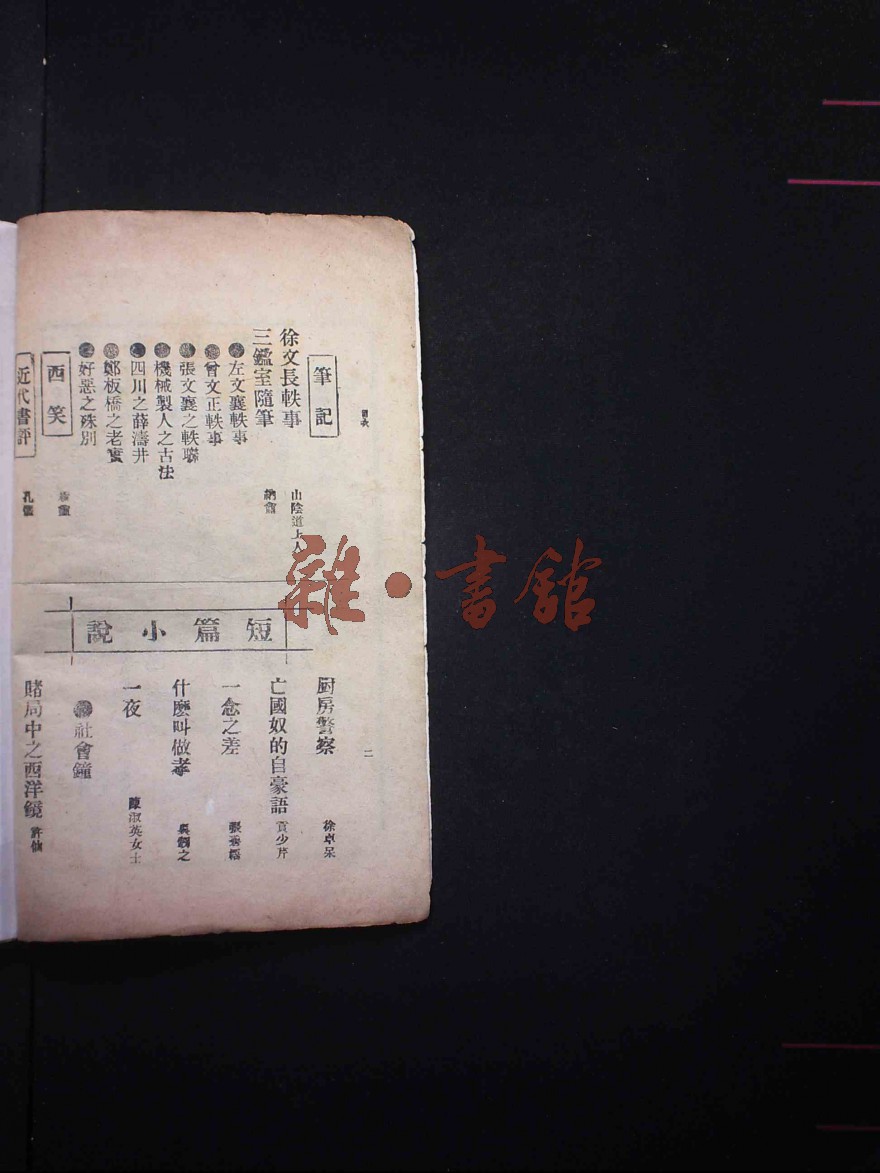 目次
筆記
徐文長軼事
山陰道上人
三鑑室隨筆
左文襄軼事
曾文正軼事
張文襄之軼聯
機械製人之古法
四川之薛濤井
鄭板橋之老實
好惡之殊別
西笑
近代書評
短篇小說
厨房警察
徐卓呆
亡國奴的自豪語
貢少芹
一念之差
什麽叫做孝
一夜
陳淑英女士
社會鐘
賭局中之西洋鏡
許仙
二
雜·書館